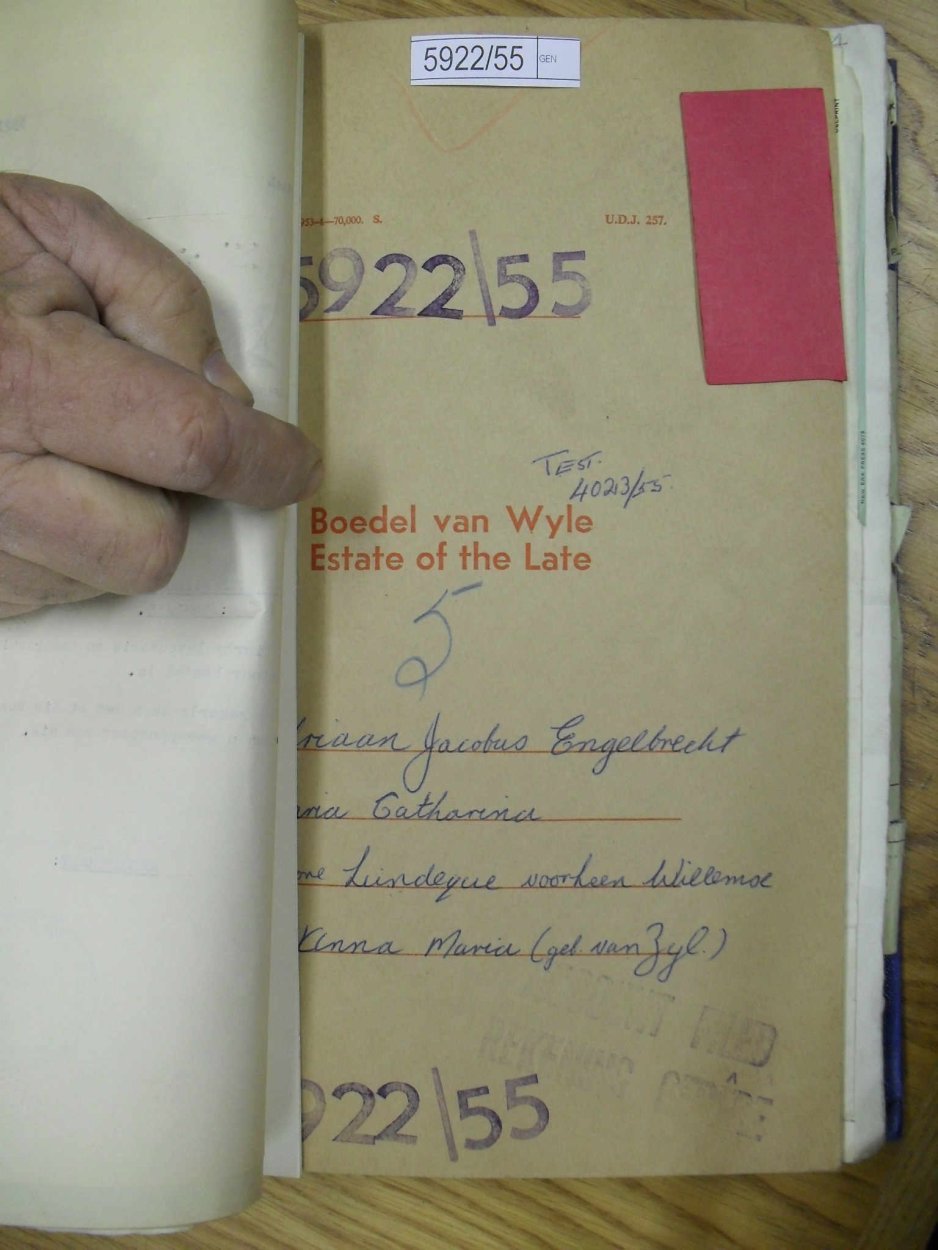 5922/55 GEN
953-4—70,000. S. U.D.J. 257.
5922\55
TEST.
4023/55.
Boedel van Wyle
Estate of the Late
5
riaan Jacobus Engelbrecht
ria Catharina
Lindeque voorheen Willemse
Anna Maria (geb. van Zyl.)
ACCOUNT FILED
REKENING
922\55